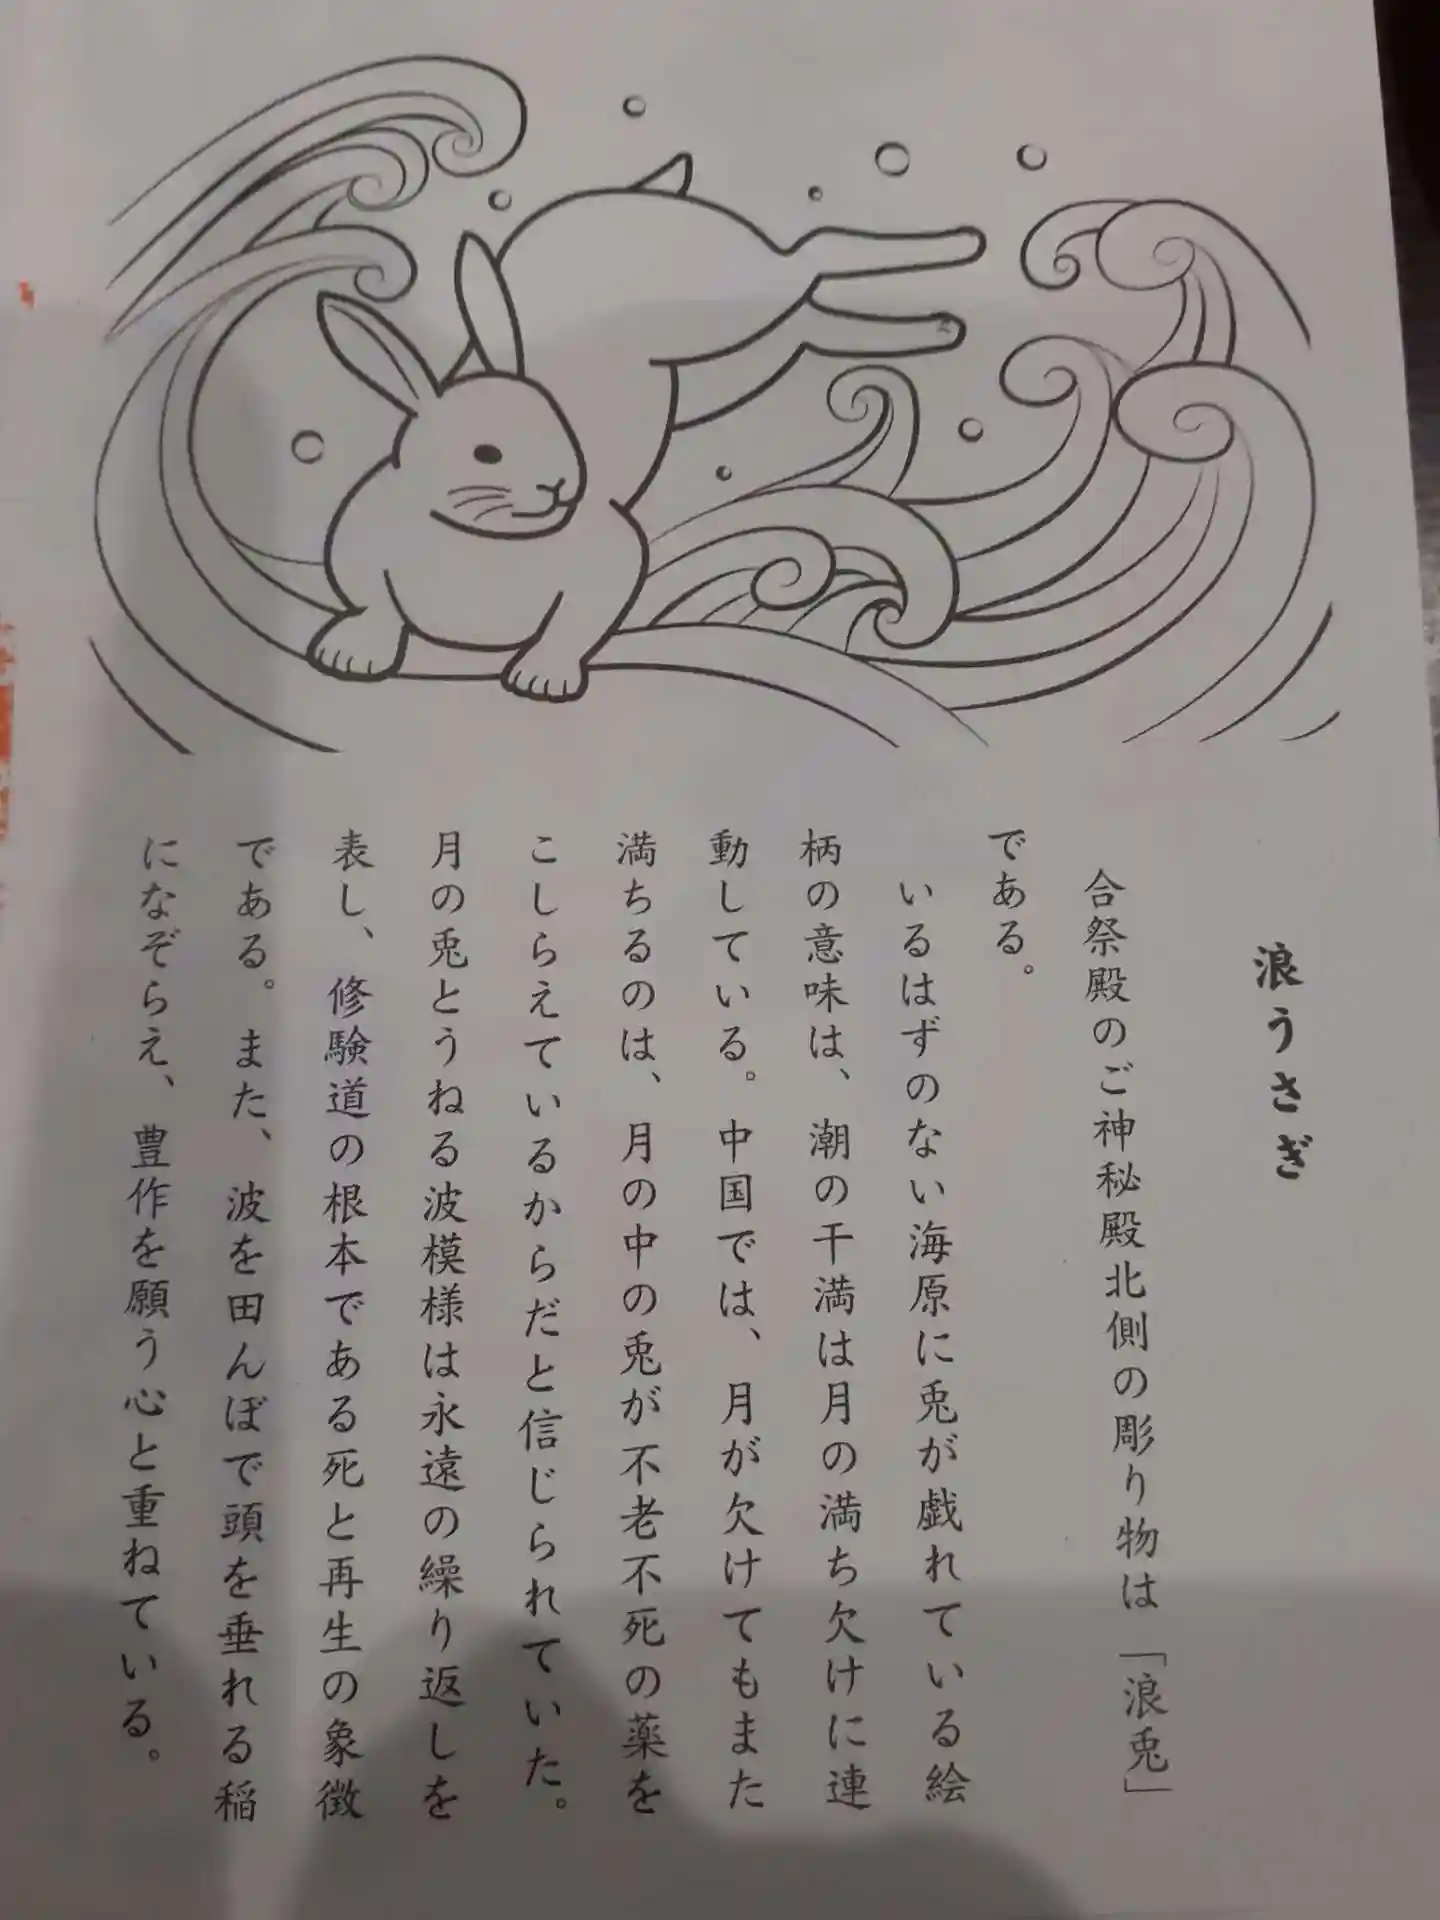 浪うさぎ
合祭殿のご神秘殿北側の彫り物は「浪兎」
である。
いるはずのない海原に兎が戯れている絵
柄の意味は、潮の干満は月の満ち欠けに連
動している。中国では、月が欠けてもまた
満ちるのは、月の中の兎が不老不死の薬を
こしらえているからだと信じられていた。
月の兎とうねる波模様は永遠の繰り返しを
表し、修験道の根本である死と再生の象徴
である。また、波を田んぼで頭を垂れる稲
になぞらえ、豊作を願う心と重ねている。